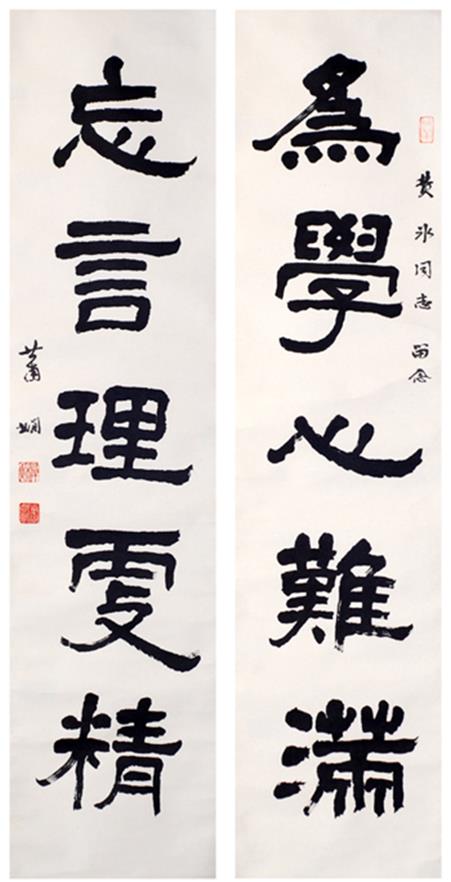 冰同志 留念
為學心難滿
忘言理更精
蕭嫻